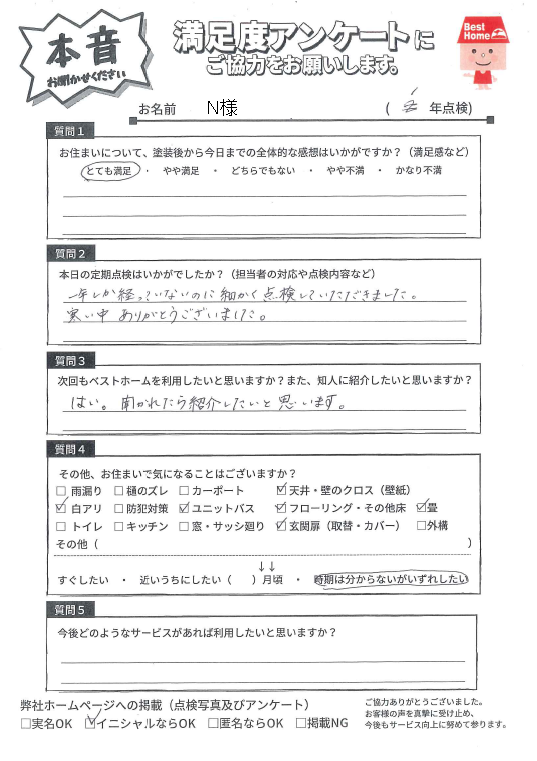 本音
お聞かせください
満足度アンケートに
ご協力をお願いします。
Best Home
お名前 N様 ( 年点検)
質問1
お住まいについて、塗装後から今日までの全体的な感想はいかがですか？（満足感など）
とても満足 ・ やや満足 ・ どちらでもない ・ やや不満 ・ かなり不満
質問2
本日の定期点検はいかがでしたか？（担当者の対応や点検内容など）
一年しか経っていないのに細かく点検していただきました。
寒い中ありがとうございました。
質問3
次回もベストホームを利用したいと思いますか？また、知人に紹介したいと思いますか？
はい。聞かれたら紹介したいと思います。
質問4
その他、お住まいで気になることはございますか？
□ 雨漏り □ 樋のズレ □ カーポート ☑ 天井・壁のクロス（壁紙）
☑ 白アリ □ 防犯対策 ☑ ユニットバス ☑ フローリング・その他床 ☑ 畳
□ トイレ □ キッチン □ 窓・サッシ廻り ☑ 玄関扉（取替・カバー） □外構
その他（ ）
↓↓
すぐしたい ・ 近いうちにしたい（ ）月頃 ・ 時期は分からないがいずれしたい
質問5
今後どのようなサービスがあれば利用したいと思いますか？
弊社ホームページへの掲載（点検写真及びアンケート）
□実名OK ☑イニシャルならOK □匿名ならOK □掲載NG
ご協力ありがとうございました。
お客様の声を真摯に受け止め、
今後もサービス向上に努めて参ります。